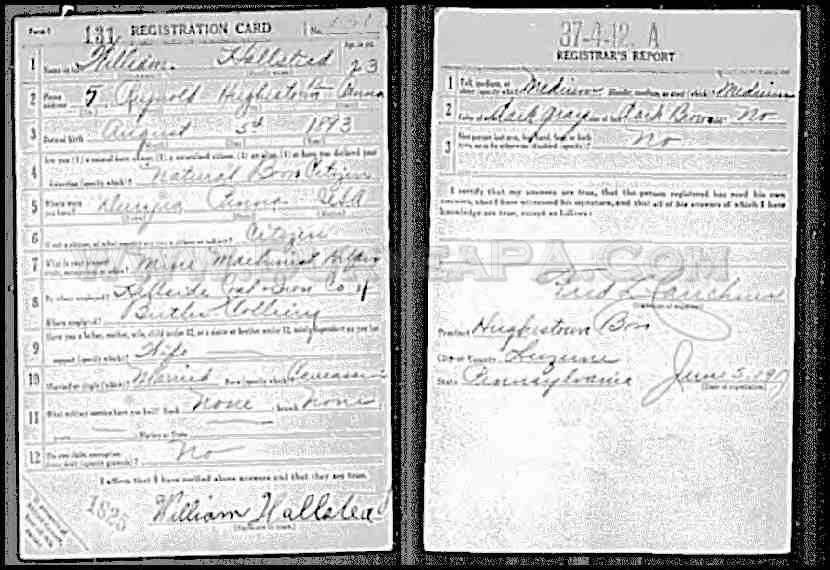 Form 1 131 REGISTRATION CARD No. 131
1 Name in full William Hallstead Age, in yrs. 23
2 Home address 5 Reynold Hughestown Penna
3 Date of birth August 5th 1893
4 Are you (1) a natural-born citizen, (2) a naturalized citizen, (3) an alien, (4) or have you declared your
intention (specify which)? Natural Born Citizen
5 Where were you born? Penna USA
6 If not a citizen, of what country are you a citizen or subject? Citizen
7 What is your present trade, occupation, or office? Miner Machinist Helper
8 By whom employed? Hillside Coal & Iron Co
Where employed? Butler Colliery
9 Have you a father, mother, wife, child under 12, or a sister or brother under 12, solely dependent on you for
support (specify which)? Wife
10 Married or single (which)? Married Race (specify which)? Caucasian
11 What military service have you had? Rank None ; branch None
years ; Nation or State
12 Do you claim exemption from draft (specify grounds)? No
I affirm that I have verified above answers and that they are true.
1825
William Hallstead
(Signature or mark)
37-4-12. A
REGISTRAR'S REPORT
1 Tall, medium, or short (specify which)? Medium Slender, medium, or stout (which)? Medium
2 Color of eyes? Dark gray Color of hair? Dark Brown Bald? No
3 Has person lost arm, leg, hand, foot, or both eyes, or is he otherwise disabled (specify)? No
I certify that my answers are true, that the person registered has read his own
answers, that I have witnessed his signature, and that all of his answers of which I have
knowledge are true, except as follows:
Fred L
(Signature of registrar)
Precinct Hughestown Boro
City or County Luzerne
State Pennsylvania June 5, 1917
(Date of registration)